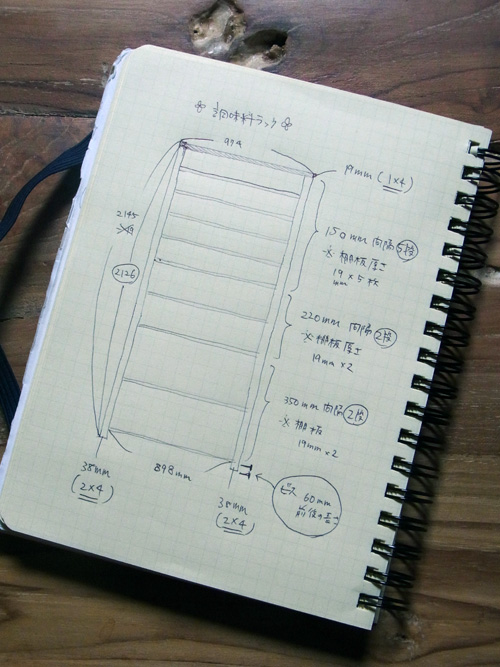 調味料ラック
974
19mm (1×4)
2145
2126
150mm 間隔 5段
※ 棚板厚さ
19 × 5枚
mm
220mm 間隔 2段
※ 棚板厚さ
19mm × 2
350mm 間隔 2段
※ 棚板
19mm × 2
38mm
(2×4)
898mm
38mm
(2×4)
ビス 60mm
前後の長さ